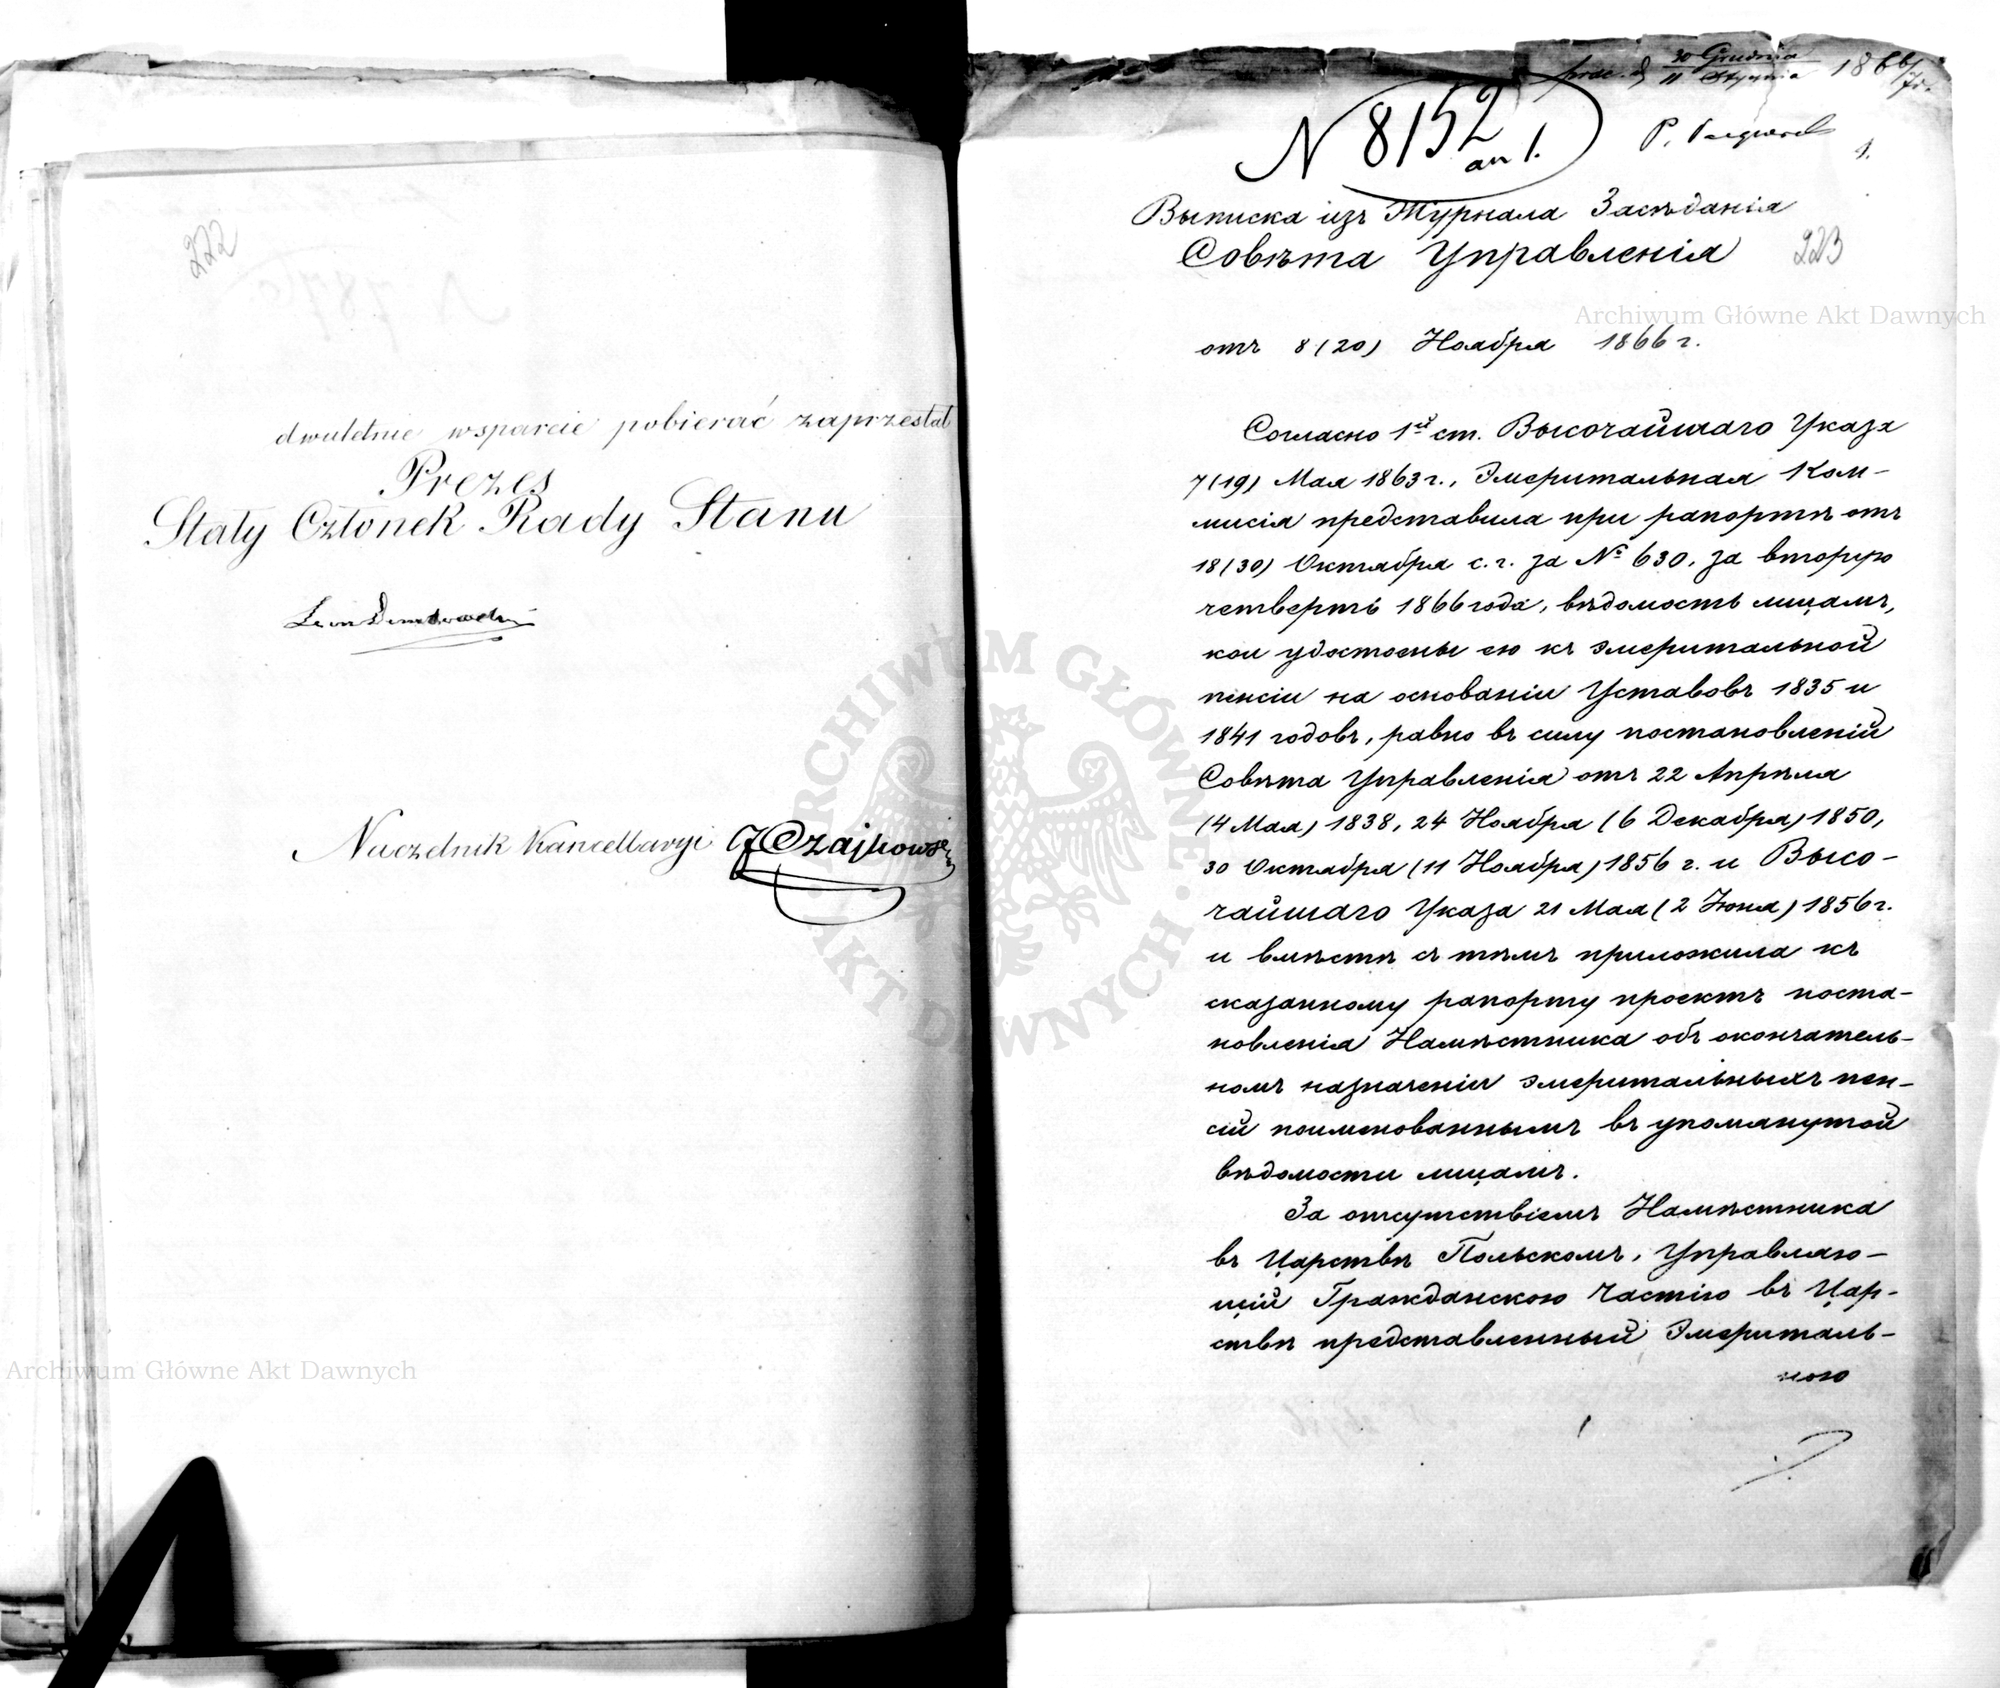 222
dwuletnie wsparcie pobierać zaprzestał
Prezes
Stały Członek Rady Stanu
Leon Dembowski
Naczelnik Kancellaryi J Czajkowski
Archiwum Główne Akt Dawnych
30 Grudnia
11 Stycznia 1866/7 r.
N 8152
an 1.
P.
1.
Выписка изъ Журнала Засѣданія
Совѣта Управленія
223
Archiwum Główne Akt Dawnych
отъ 8 (20) Ноября 1866 г.
Согласно 1ой ст. Высочайшаго Указа
7 (19) Мая 1863 г., Эмеритальная Ком-
мисія представила при рапортѣ отъ
18 (30) Октября с. г. за № 630, за вторую
четверть 1866 года, вѣдомость лицамъ,
кои удостоены ею къ эмеритальной
пенсіи на основаніи Уставовъ 1835 и
1841 годовъ, равно въ силу постановленій
Совѣта Управленія отъ 22 Апрѣля
(4 Мая) 1838, 24 Ноября (6 Декабря) 1850,
30 Октября (11 Ноября) 1856 г. и Высо-
чайшаго Указа 21 Мая (2 Іюня) 1856 г.
и вмѣстѣ съ тѣмъ приложила къ
сказанному рапорту проектъ поста-
новленія Намѣстника объ окончатель-
номъ назначеніи эмеритальныхъ пен-
сій поименованнымъ въ упомянутой
вѣдомости лицамъ.
За отсутствіемъ Намѣстника
въ Царствѣ Польскомъ, Управляю-
щій Гражданскою Частію въ Цар-
ствѣ представленный Эмериталь-
ною
ARCHIWUM GŁÓWNE AKT DAWNYCH